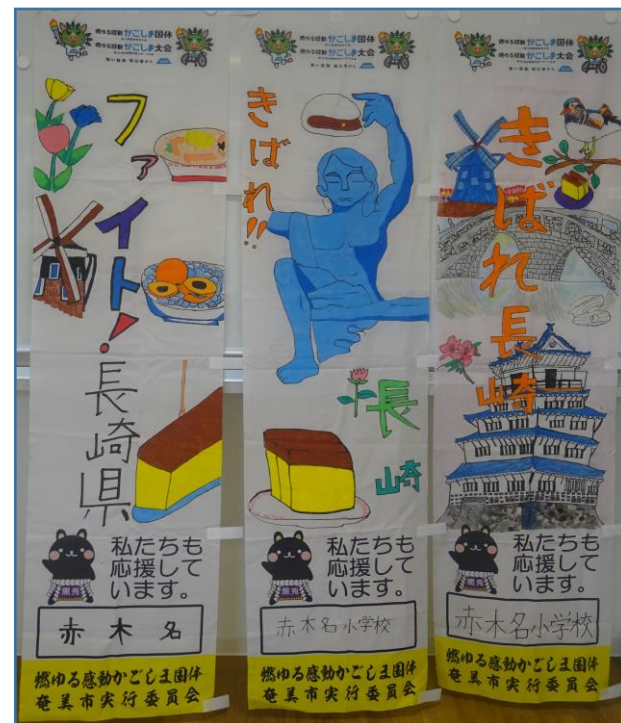 燃ゆる感動かごしま国体
燃ゆる感動かごしま大会
ファイト!
長崎県
私たちも
応援して
います。
赤木名
燃ゆる感動かごしま国体
奄美市実行委員会
燃ゆる感動かごしま国体
燃ゆる感動かごしま大会
きばれ!!
長崎
私たちも
応援して
います。
赤木名小学校
燃ゆる感動かごしま国体
奄美市実行委員会
燃ゆる感動かごしま国体
燃ゆる感動かごしま大会
きばれ長崎
私たちも
応援して
います。
赤木名小学校
燃ゆる感動かごしま国体
奄美市実行委員会